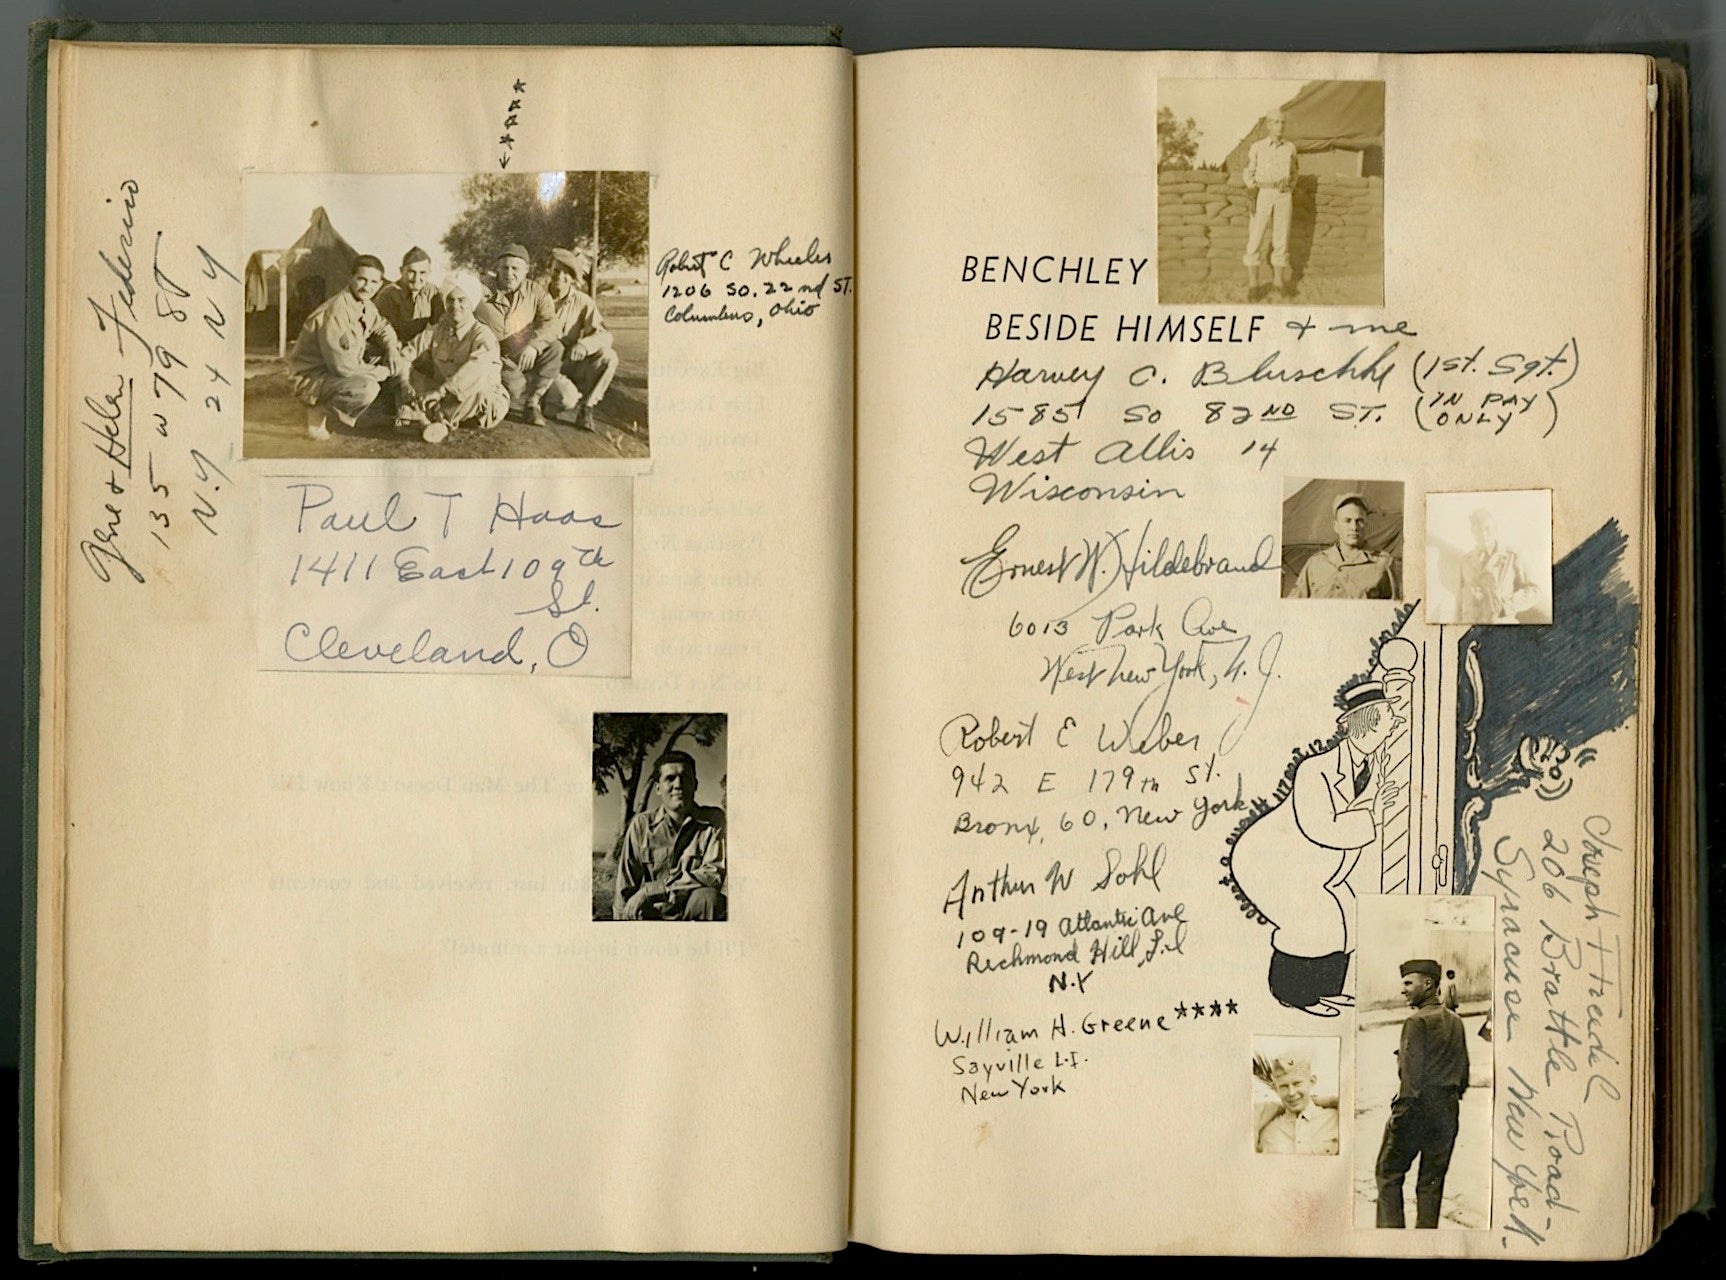 Gene & Helen Federico
135 W 79 ST
N.Y 24 N Y
Robert C Wheeler
1206 So. 22nd ST.
Columbus, Ohio
Paul T Haas
1411 East 109th
St.
Cleveland, O
BENCHLEY
BESIDE HIMSELF & me
Harvey C. (1st. Sgt.)
1585 So 82ND ST. (IN PAY ONLY)
West Allis 14
Wisconsin
Ernest W. Hildebrand
6013 Park Ave
West New York, N. J.
Robert E Weber
942 E 179th St.
Bronx, 60, New York
Arthur W Sohl
109-19 Atlantic Ave
Richmond Hill, L.I
N.Y
William H. Greene ****
Sayville L.I.
New York
Joseph
206 Brattle Road-
Syracuse New York.